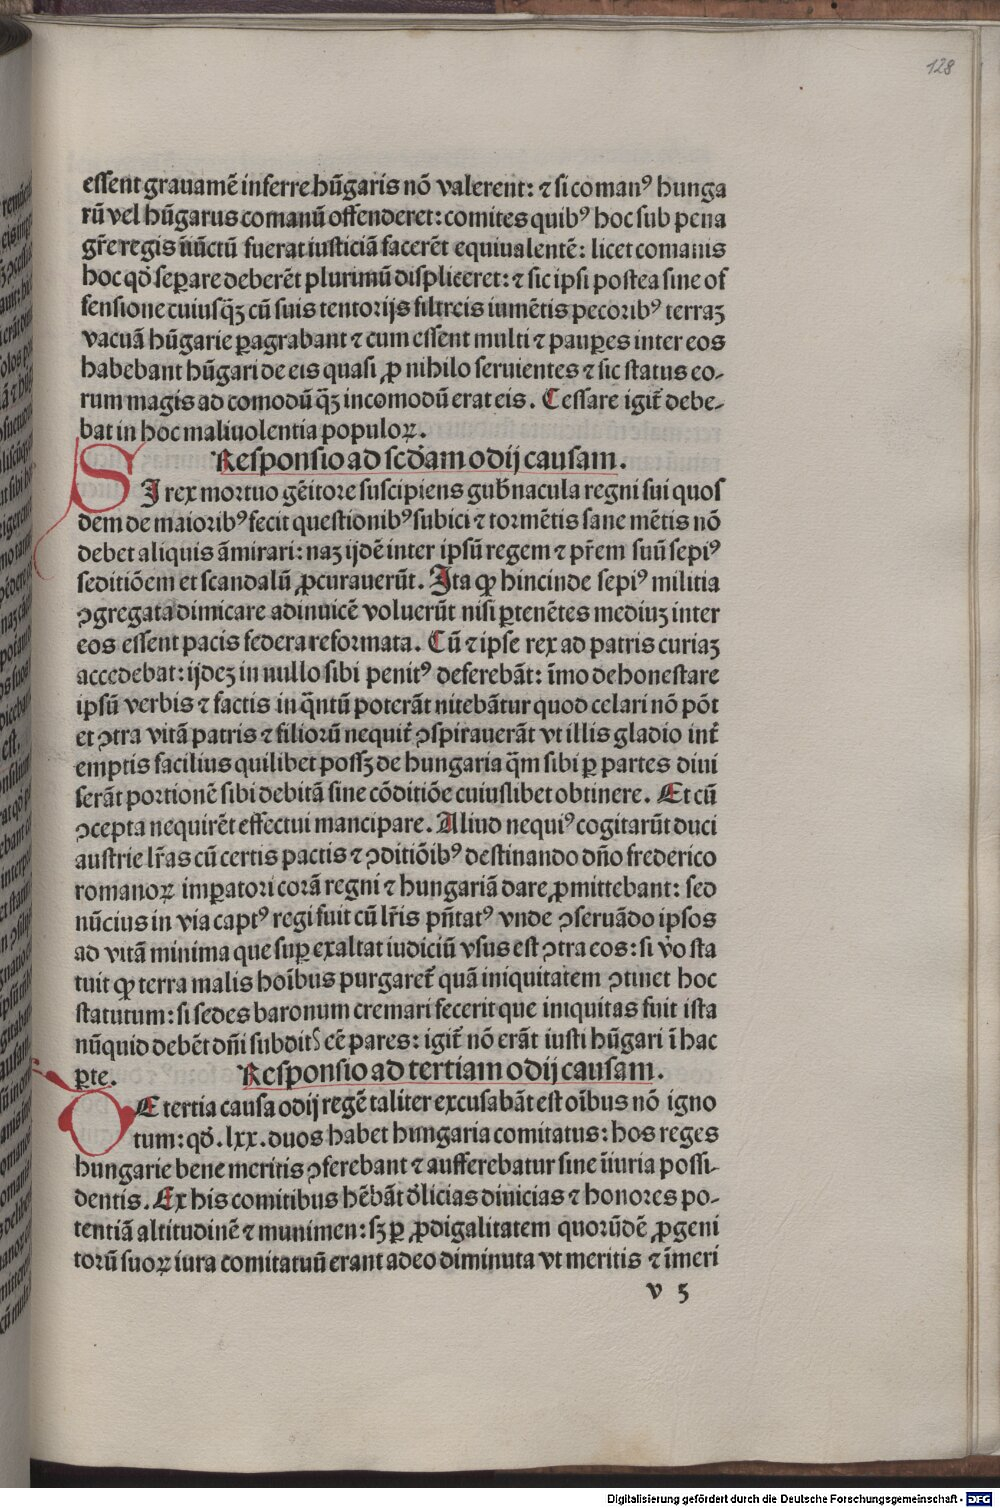 128
essent grauamē inferre hūgaris nō valerent: ⁊ si comanꝰ hunga
rū vel hūgarus comanū offenderet: comites quibꝰ hoc sub pena
gr̄e regis iūctū fuerat iusticiā facerēt equiualentē: licet comanis
hoc qđ seꝑare deberēt plurimū displiceret: ⁊ sic ipsi postea sine of
fensione cuiusqꝫ cū suis tentorijs filtreis iumētis pecoribꝰ terraꝫ
vacuā hūgarie ꝑagrabant ⁊ cum essent multi ⁊ pauꝑes inter eos
habebant hūgari de eis quasi ꝓ nihilo seruientes ⁊ sic status eo-
rum magis ad comodū qꝫ incomodū erat eis. Cessare igit̄ debe-
bat in hoc maliuolentia populoꝝ.
Responsio ad scđam odij causam.
SI rex mortuo gēitore suscipiens gub̄nacula regni sui quos
dem de maioribꝰ fecit questionibꝰ subici ⁊ tormētis sane mētis nō
debet aliquis āmirari: naꝫ ijdē inter ipsū regem ⁊ pr̄em suū sepiꝰ
seditiōem et scandalū ꝓcurauerūt. Ita ꝙ hincinde sepiꝰ militia
ꝯgregata dimicare adinuicē voluerūt nisi ꝑtenētes mediuꝫ inter
eos essent pacis federa reformata. Cū ⁊ ipse rex ad patris curiaꝫ
accedebat: ijdeꝫ in nullo sibi penitꝰ deferebāt: īmo dehonestare
ipsū verbis ⁊ factis in q̄ntū poterāt nitebātur quod celari nō pōt
et ꝯtra vitā patris ⁊ filiorū nequit̄ ꝯspirauerāt vt illis gladio int̄
emptis facilius quilibet possꝫ de hungaria q̄m sibi ꝑ partes diui
serāt portionē sibi debitā sine cōditiōe cuiuslibet obtinere. Et cū
ꝯcepta nequirēt effectui mancipare. Aliud nequiꝰ cogitarūt duci
austrie lr̄as cū certis pactis ⁊ ꝯditiōibꝰ destinando dn̄o frederico
romanoꝝ imꝑatori corā regni ⁊ hungariā dare ꝓmittebant: sed
nūcius in via captꝰ regi fuit cū lr̄is pn̄tatꝰ vnde ꝯseruādo ipsos
ad vitā minima que suꝑexaltat iudiciū vsus est ꝯtra eos: si v̄o sta
tuit ꝙ terra malis hoībus purgaret̄ quā iniquitatem ꝯtinet hoc
statutum: si sedes baronum cremari fecerit que iniquitas fuit ista
nūquid debēt dn̄i subditꝭ eē pares: igit̄ nō erāt iusti hūgari ī hac
ꝑte.
Responsio ad tertiam odij causam.
DE tertia causa odij regē taliter excusabāt est oībus nō igno
tum: qđ .lxx. duos habet hungaria comitatus: hos reges
hungarie bene meritis ꝯferebant ⁊ aufferebatur sine īiuria possi-
dentis. Ex his comitibus hēbāt đlicias diuicias ⁊ honores po-
tentiā altitudinē ⁊ munimen: sꝫ ꝑ ꝓdigalitatem quorūdē ꝓgeni
torū suoꝝ iura comitatuū erant adeo diminuta vt meritis ⁊ īmeri
v 5
Digitalisierung gefördert durch die Deutsche Forschungsgemeinschaft - DFG